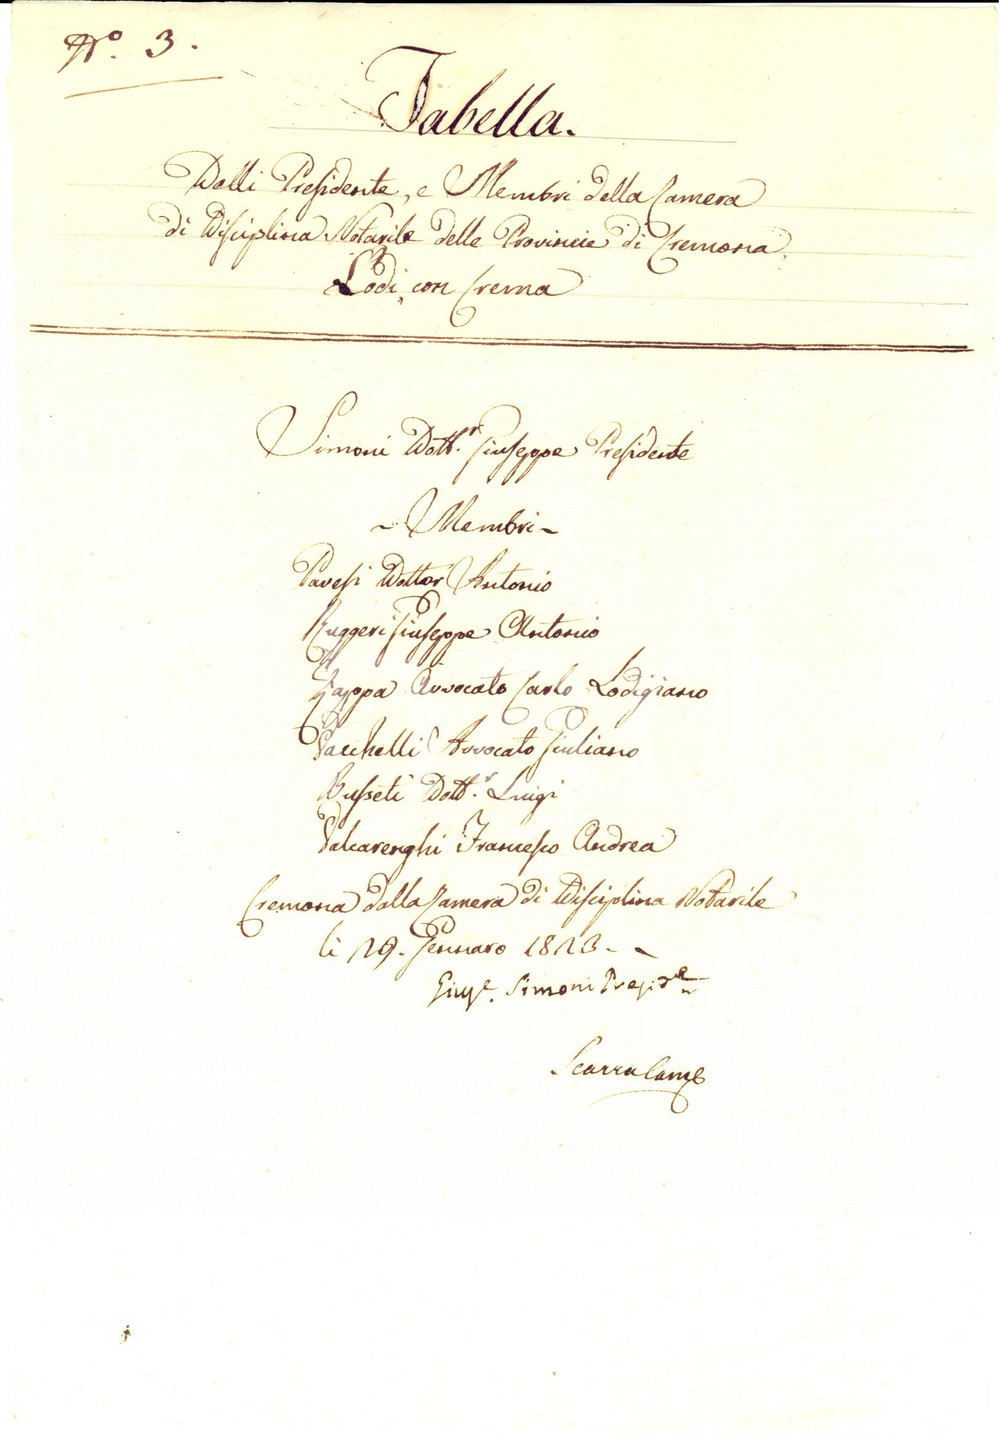 N.° 3.
Tabella.
Delli Presidente, e Membri della Camera
di Disciplina Notarile delle Provincie di Cremona,
Lodi, con Crema
Simoni Dott.r Giuseppe Presidente
~ Membri ~
Pavesi Dottor Antonio
Ruggeri Giuseppe Antonio
Zappa Avvocato Carlo Lodigiano
Vacchelli Avvocato Giuliano
Busseti Dott.r Luigi
Valcarenghi Francesco Andrea
Cremona dalla Camera di Disciplina Notarile
li 29. Gennaro 1823. ~
Simoni Presid.e